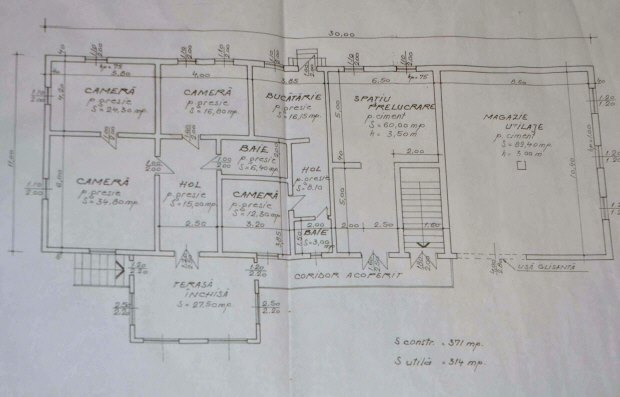 30,00
5,80
4,00
3,85
6,50
8,60
hp=75
hp=75
CAMERĂ
p. gresie
S=24,30 mp.
CAMERĂ
p. gresie
S=16,80 mp.
BUCĂTĂRIE
p. gresie
S=16,15 mp.
SPAȚIU
PRELUCRARE
p. ciment
S=60,00 mp.
h=3,50m
MAGAZIE
UTILAJE
p. ciment
S=89,40 mp.
h=3,00 m
4,20
5,00
BAIE
p. gresie
S=6,40 mp.
2,00
CAMERĂ
p. gresie
S=34,80 mp.
HOL
p. gresie
S=15,00 mp.
CAMERĂ
p. gresie
S=12,30 mp.
HOL
p. gresie
S=8,10
5,00
11,00
2,50
3,20
3,85
2,00
BAIE
S=3,00
2,00
2,50
1,60
TERASĂ
ÎNCHISĂ
S=27,50 mp.
CORIDOR ACOPERIT
UȘĂ GLISANTĂ
2,50
2,20
2,50
2,20
S constr. = 371 mp.
S utilă = 314 mp.